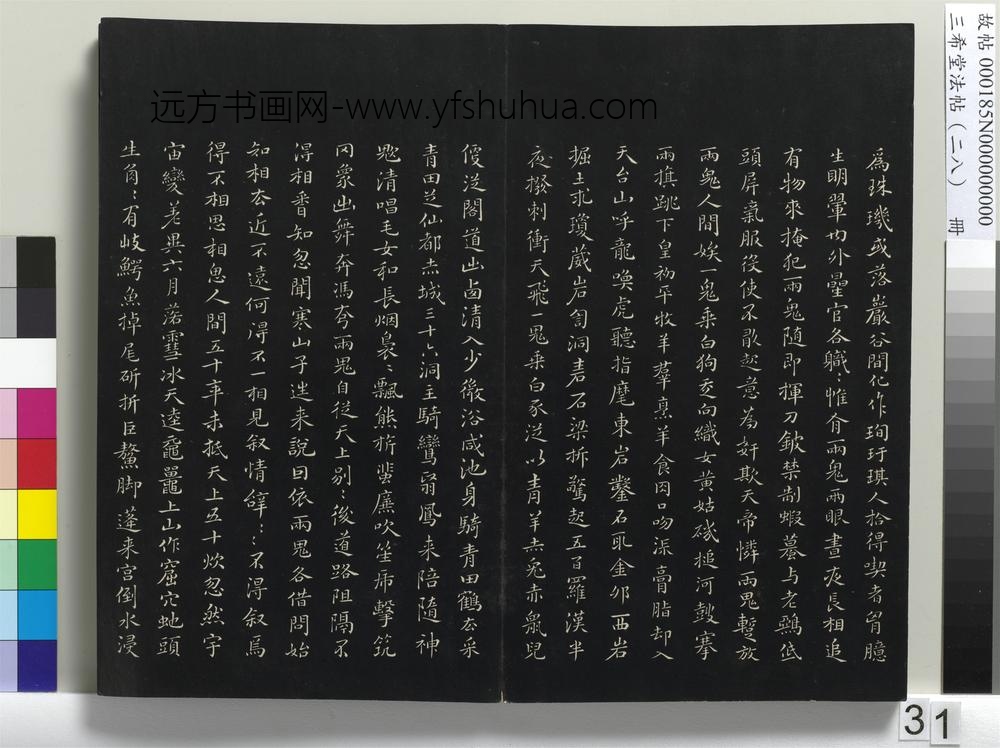 故帖000185N000000000
三希堂法帖（二八） 冊
远方书画网-www.yfshuhua.com
為珠璣或落巖谷間化作珣玗琪人拾得喫者胷臆
生明翬内外星官各職〻惟有兩鬼兩眼晝夜長相追
有物來掩犯兩鬼隨即揮刀鈹禁制蝦蟇与老鵶低
頭屏氣服役使不敢起意為奸欺天帝憐兩鬼暫放
兩鬼人間娭一鬼乘白狗走向織女黃姑磯槌河鼓搴
兩旗跳下皇初平牧羊羣烹羊食肉口吻流膏脂却入
天台山呼龍喚虎聽指麾東岩鑿石取金卯西岩
掘土求瓊葳岩訇洞砉石梁折驚起五百羅漢半
夜撥刺衝天飛一鬼乘白豕從以青羊赤兔赤鼠兒
便從閣道出西清入少微浴咸池身騎青田鶴去采
青田芝仙都赤城三十六洞主騎鸞翳鳳来陪隨神
鬼清唱毛女和長烟裊〻飄熊旂蜚廉吹笙虎擊筑
罔象出舞奔馮夸兩鬼自從天上別〻後道路阻隔不
得相香知忽聞寒山子迯来說因依兩鬼各借問始
知相去近不遠何得不一相見叙情辭〻〻不得叙焉
得不相思相思人間五十年未抵天上五十炊忽然宇
宙變差異六月落雪冰天逵黿鼉上山作窟穴蛇頭
生角〻有岐鰐魚掉尾斫折巨鰲脚蓬来宮倒水浸
31